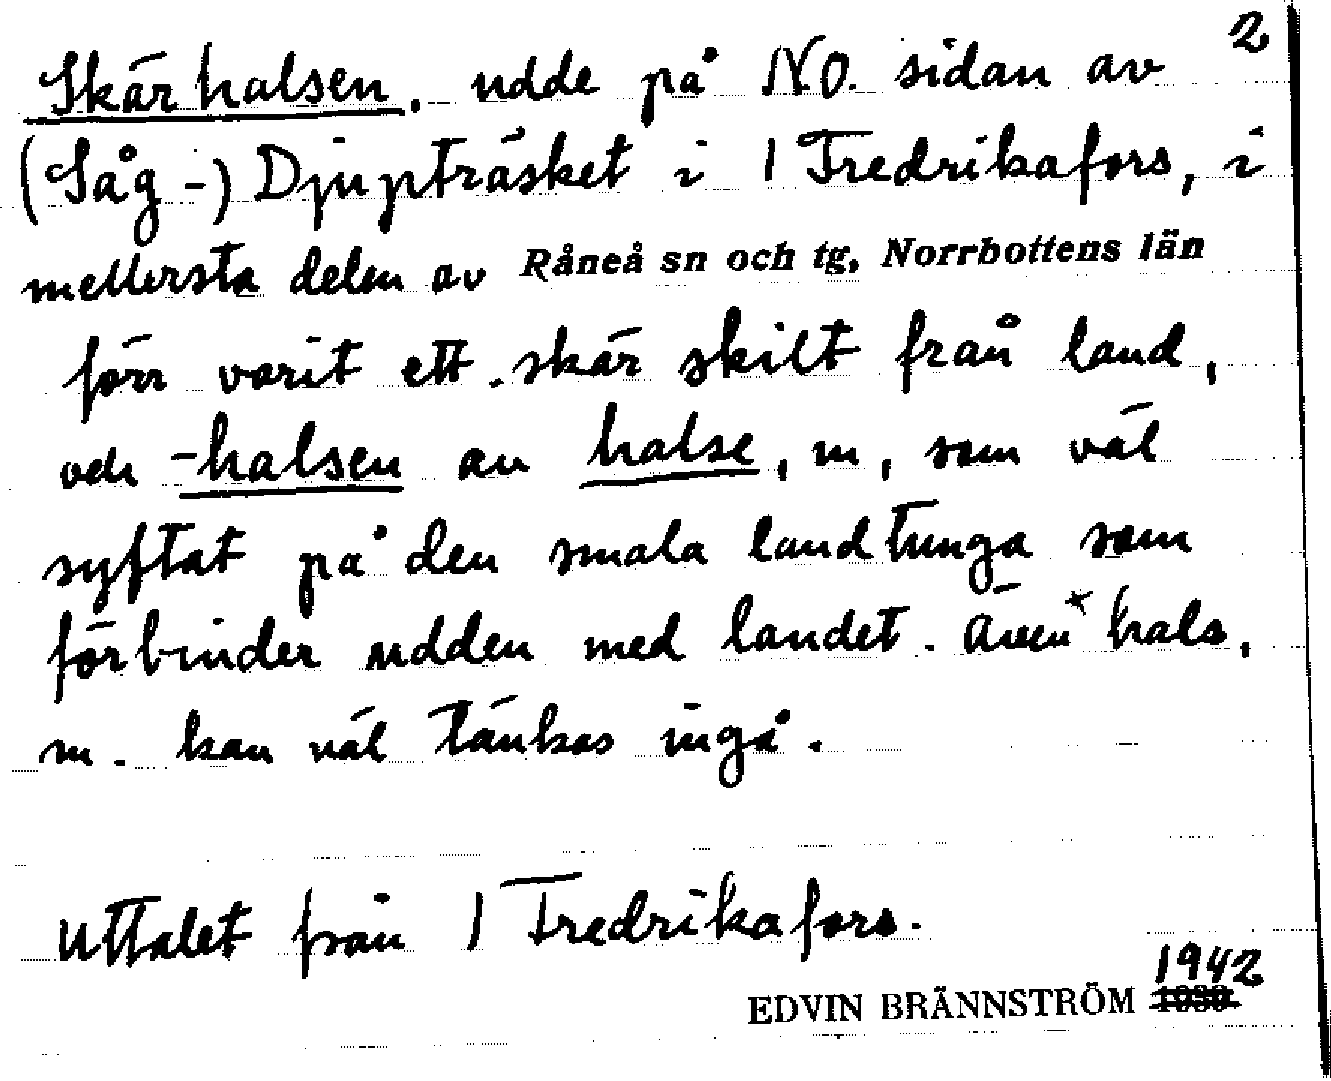 2
Skärhalsen, udde på N.O. sidan av
(Såg-) Djupträsket i 1 Fredrikafors, i
mellersta delen av Råneå sn och tg, Norrbottens län
förr varit ett skär skilt från land,
och -halsen av halse, m, som väl
syftat på den smala landtunga som
förbinder udden med landet. Även * hals,
m. kan väl tänkas ingå.
Uttalet från 1 Fredrikafors.
1942
EDVIN BRÄNNSTRÖM